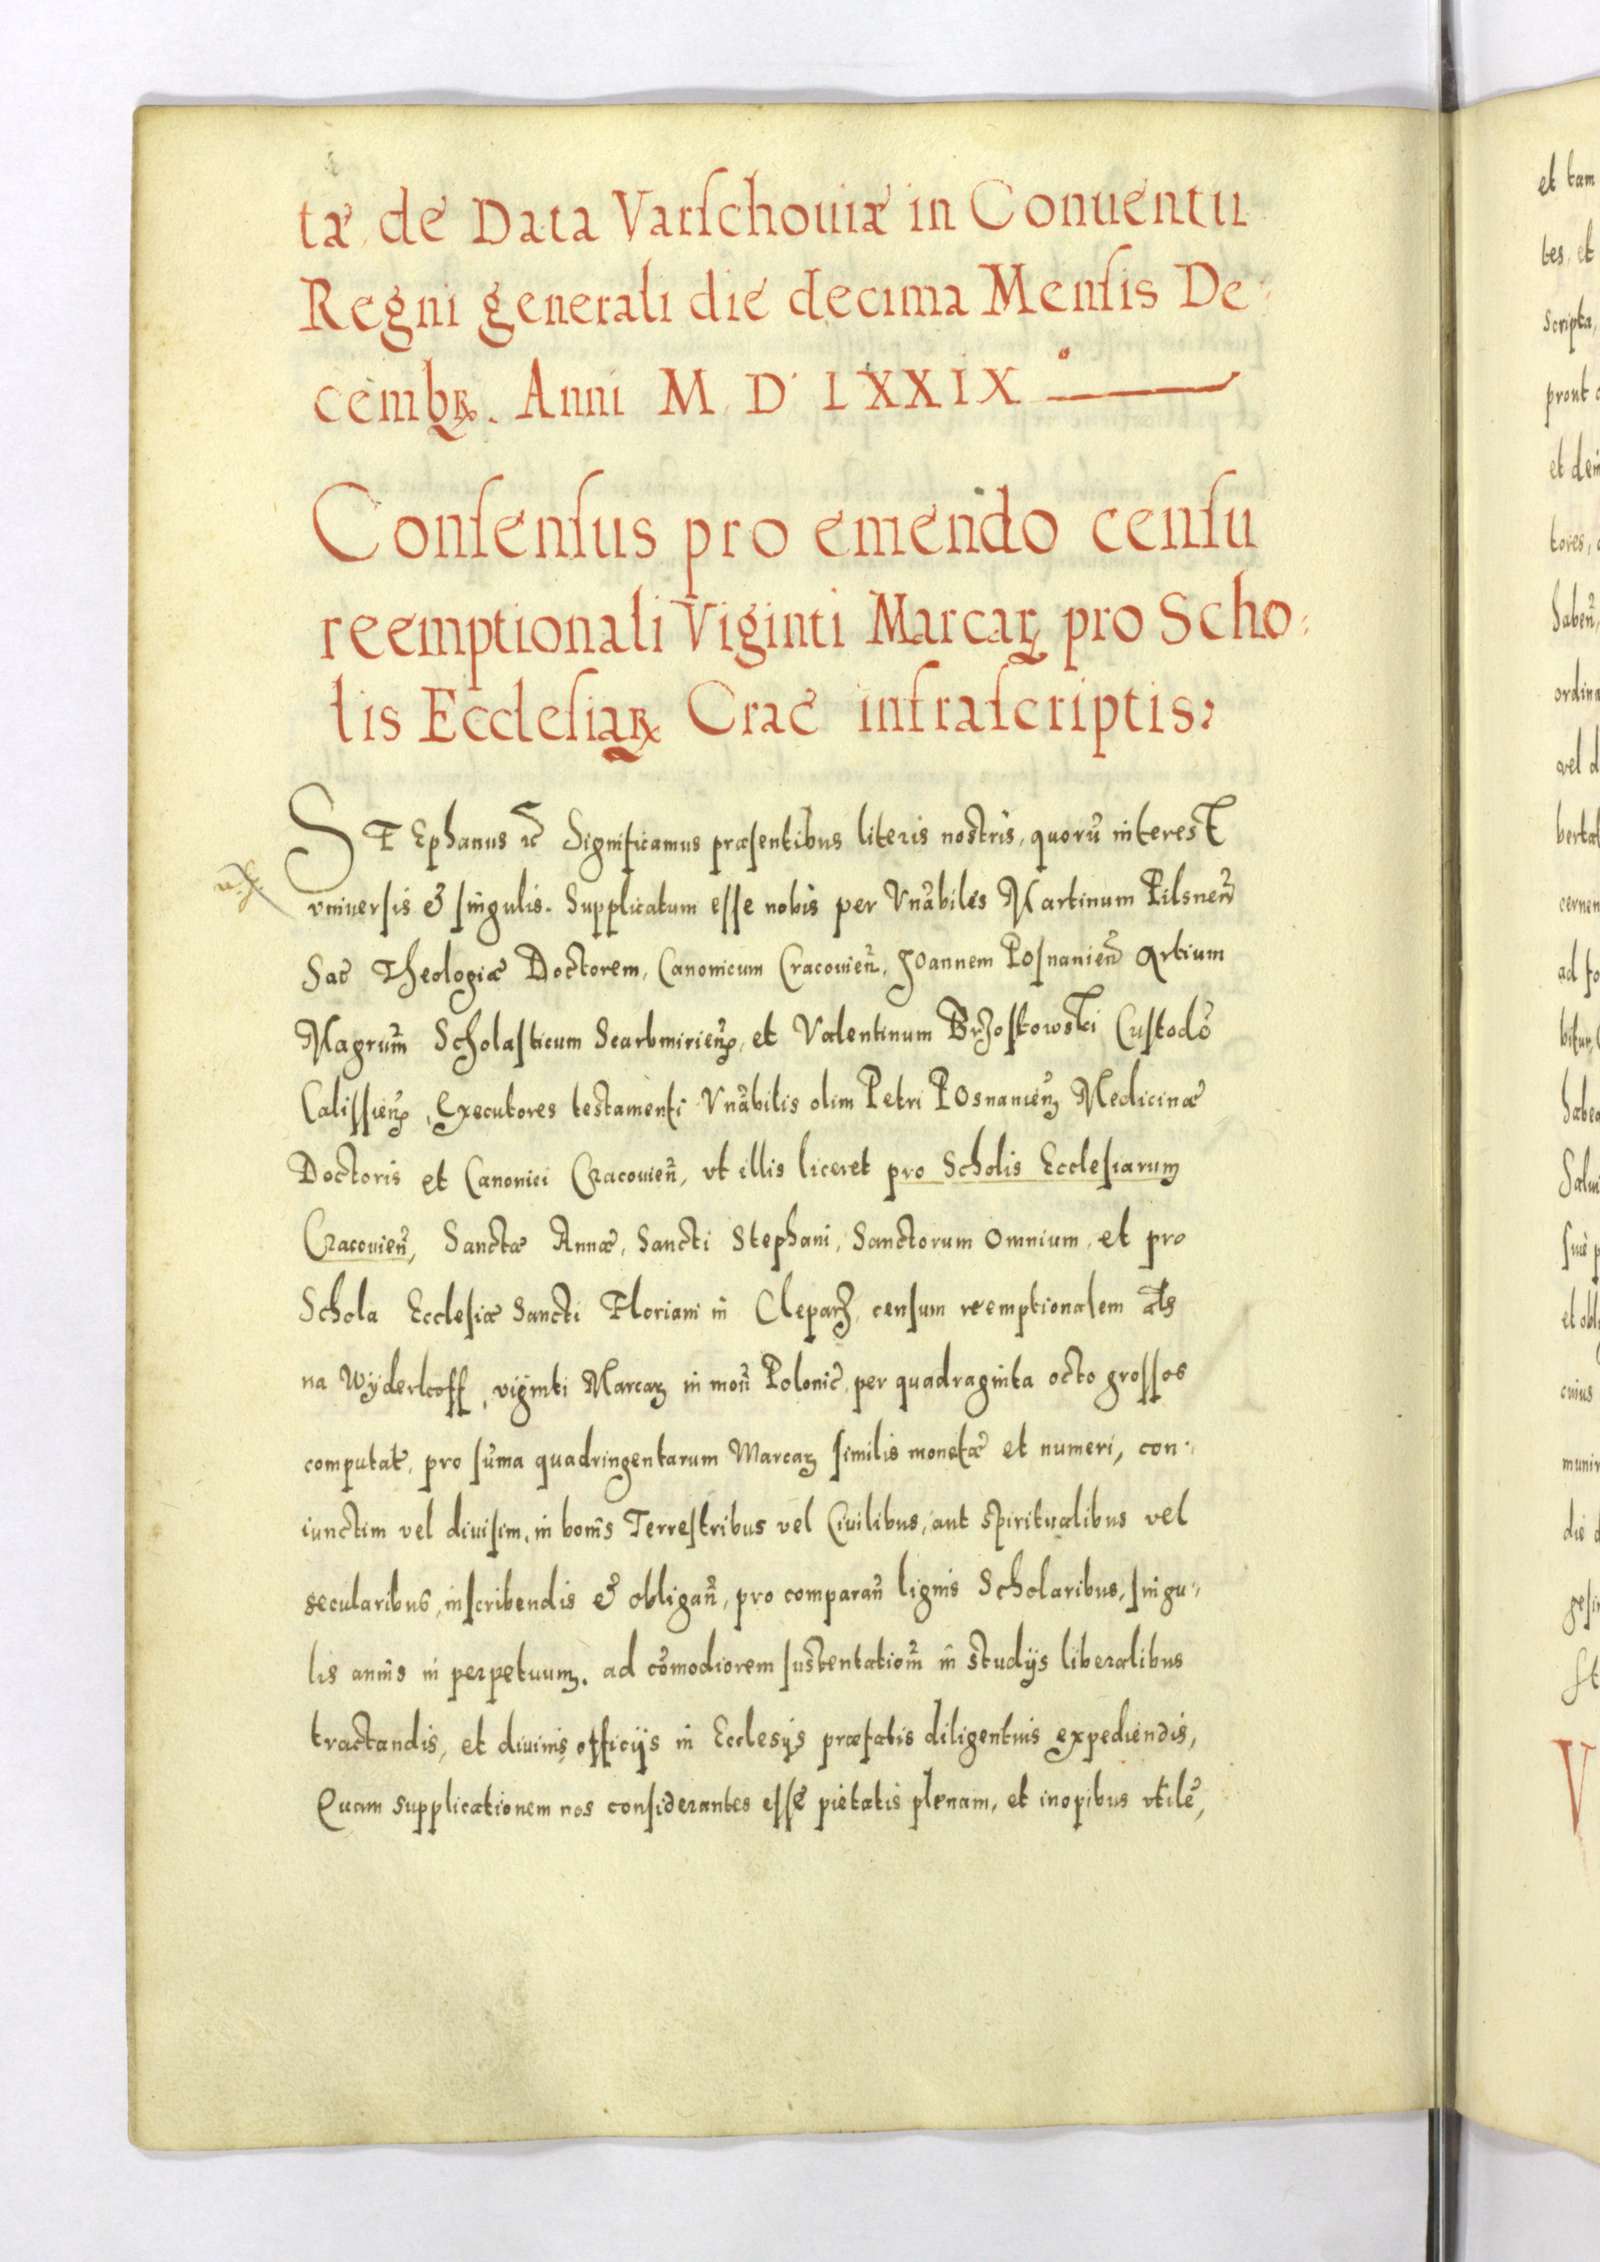 tæ de Data Varſchouiæ in Conuentu
Regni generali die decima Menſis De:
cembꝶ. Anni M D LXXIX°
Conſenſus pro emendo cenſu
reemptionali Viginti Marcaꝝ pro Scho:
lis Eccleſiaꝝ Crac̄ infraſcriptis:
STEphanus ꝛc̄ Significamus præſentibus literis nostris, quorū interest
vniuerſis & ſingulis. Supplicatum eſſe nobis per Vnābiles Martinum Pilsneñ
Sac̄ Theologiæ Doctorem, Canonicum Cracouieñ, Joannem Poſnanieñ Artium
Magrum̄ Scholaſticum Scarbmirieñ, et Valentinum Brzoſkowski Cuſtodē
Caliſſieñ, Executores testamenti Vnābilis olim Petri Posnanieñ Medicinæ
Doctoris et Canonici Cracouieñ, vt illis liceret pro Scholis Eccleſiarum
Cracouieñ, Sanctæ Annæ, Sancti Stephani, Sanctorum Omnium, et pro
Schola Eccleſiæ Sancti Floriani in Cleparꝫ, cenſum reemptionalem als̄
na Wyderkoff, viginti Marcaꝝ in moñ Polonic̄, per quadraginta octo groſſos
computat̄, pro ſum̄a quadringentarum Marcaꝝ ſimilis monetæ et numeri, con:
iunctim vel diuiſim, in bonis Terreſtribus vel Ciuilibus, aut Spiritualibus vel
secularibus, inſcribendis & obligañ, pro comparañ lignis Scholaribus, ſingu:
lis annis in perpetuum, ad com̄odiorem ſustentatiom̄ in studijs liberalibus
tractandis, et diuinis officijs in Eccleſijs præfatis diligentius expediendis,
Quam supplicationem nos conſiderantes eſſe pietatis plenam, et inopibus vtilē,
et tam
tes, et
Scripta,
prout
tores,
ordina
vel d
bertat
cernen
ad fo
cuius
munir
die
V